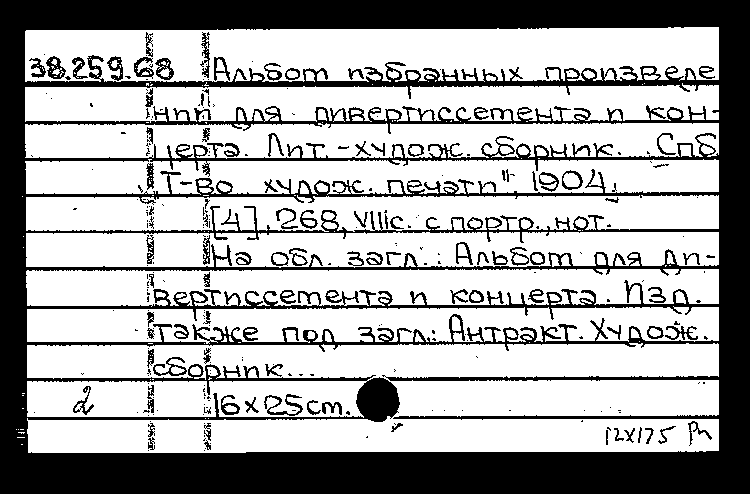 38.259.68 Альбом избранных произведе
нии для дивертиссемента и кон-
церта. Лит.-худож. сборник. Спб.
„Т-во худож. печати", 1904.
[4], 268, VIIIс. с портр., нот.
На обл. загл.: Альбом для ди-
вертиссемента и концерта. Изд.
также под загл.: Антракт. Худож.
сборник...
2 16x25cm.
12x175